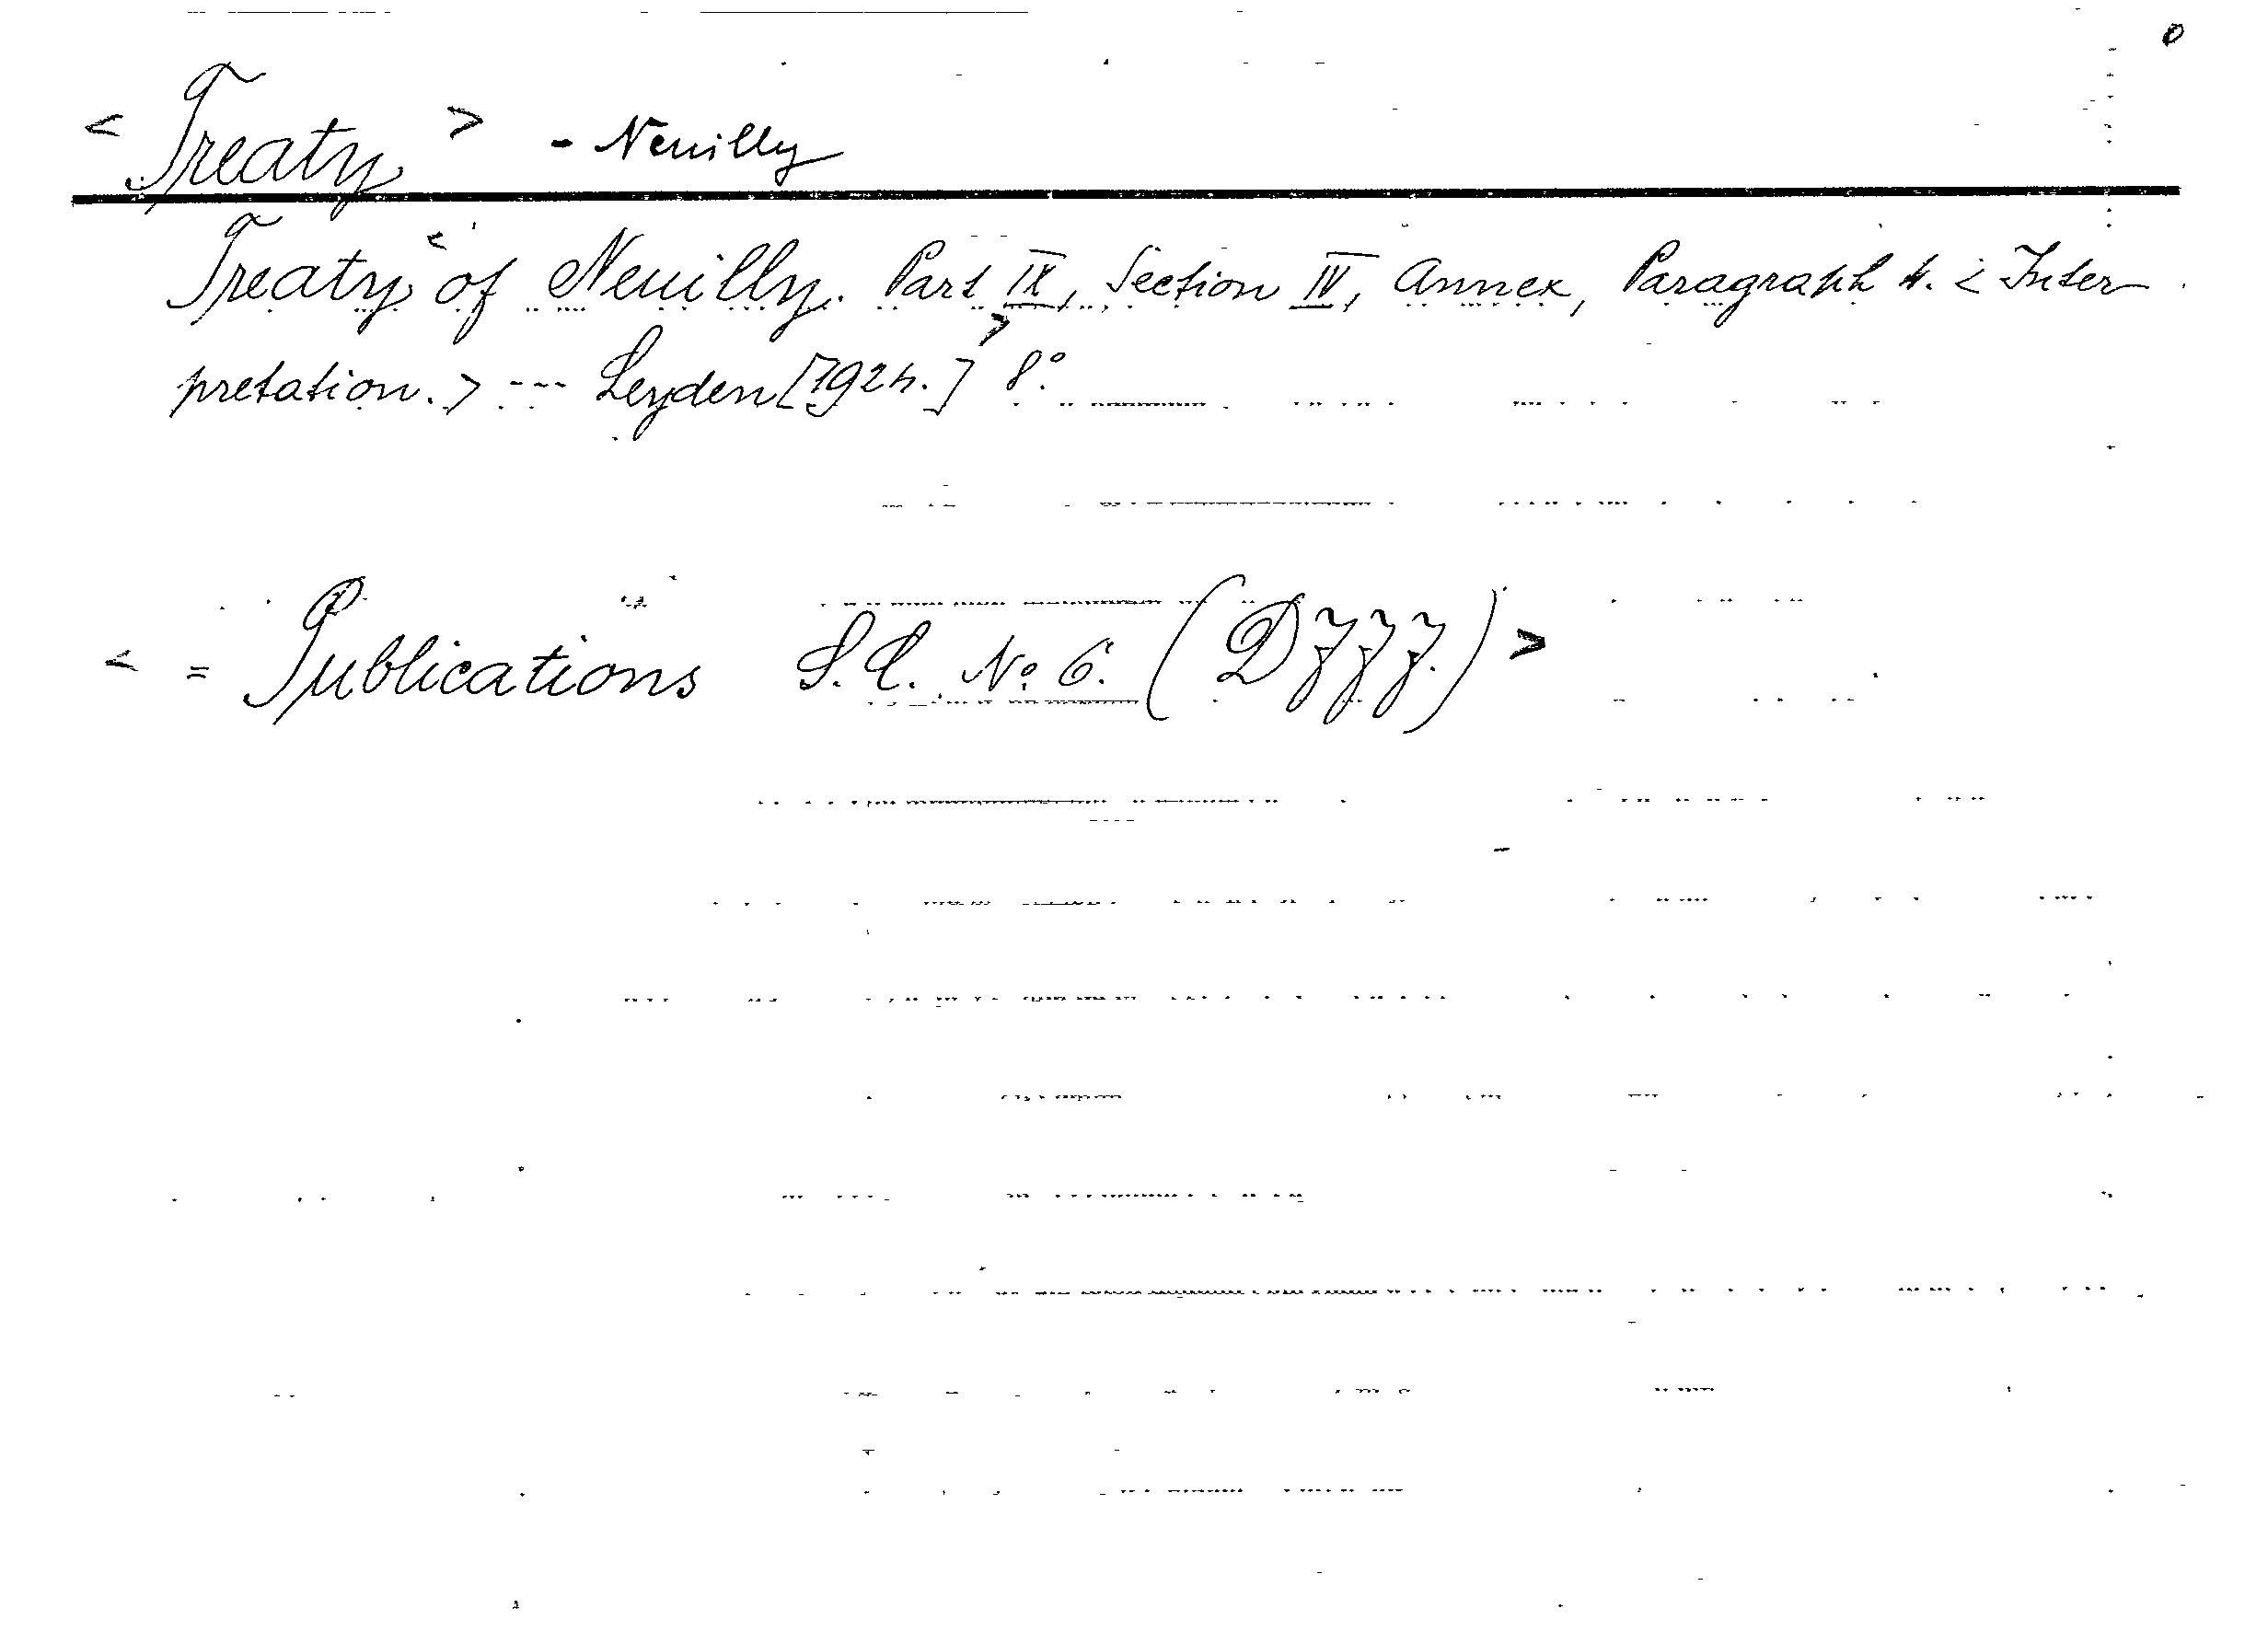 < Treaty > - Neuilly
Treaty < of Neuilly. Part IX, Section IV, Annex, Paragraph 4. < Inter
pretation. > --- Leyden [1924.] > 8°.
< = Publications No 6. >